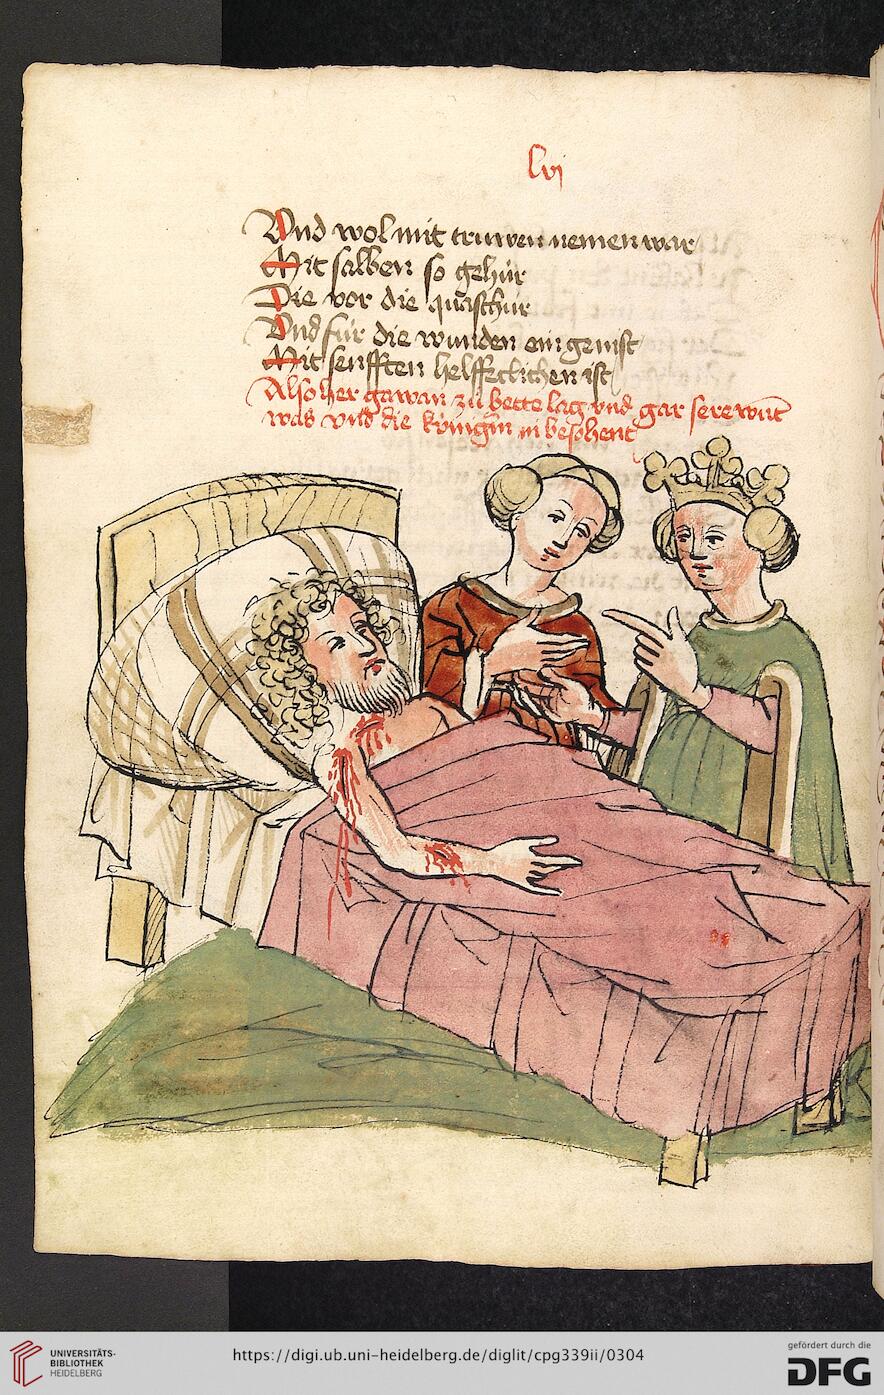 lvi
Vnd wol mit truwen nemen war
Mit salben so gehür
Die vor die quaschur
Vnd für die wunden ein genist
Mit senfften helffeclichen ist
Also her gawan zu bette lag vnd gar sere wunt
was vnd die künigin in besehent
UNIVERSITÄTS-
BIBLIOTHEK
HEIDELBERG
https://digi.ub.uni-heidelberg.de/diglit/cpg339ii/0304
gefördert durch die
DFG